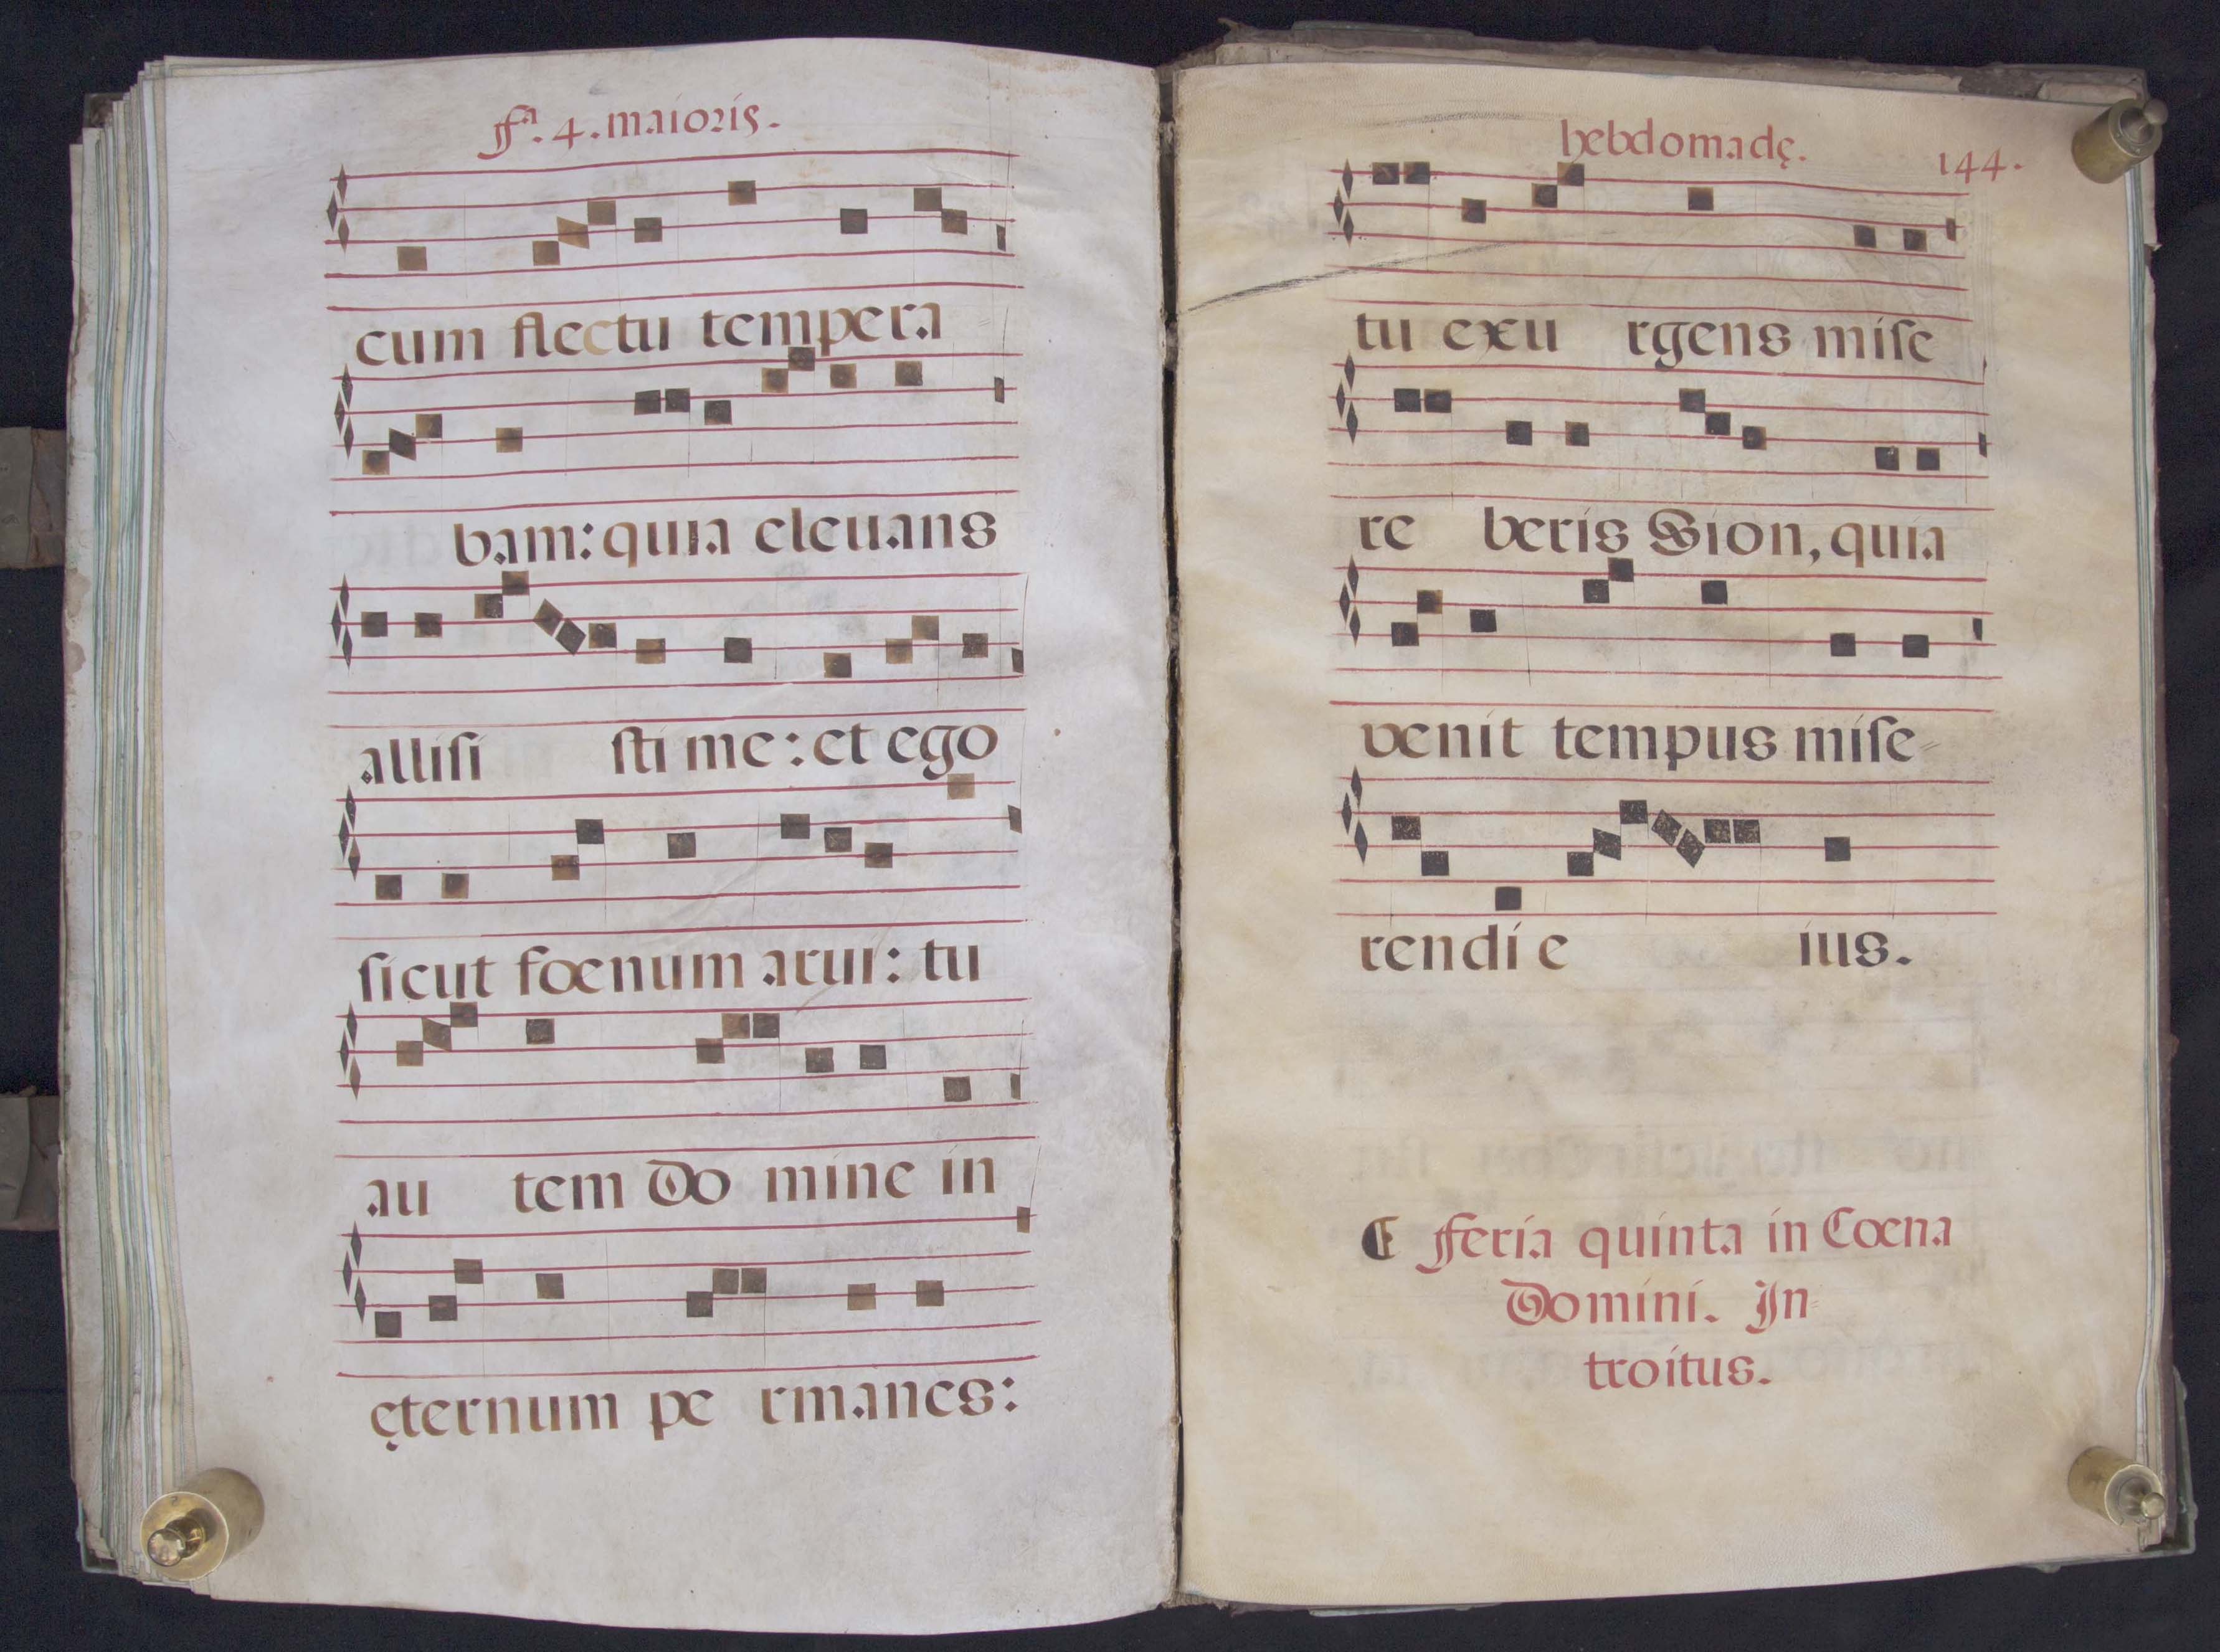 fꝭª. 4. maioris.
cum flectu tempera
bam: quia eleuans
allisi sti me: et ego
sicut foenum arui: tu
au tem Do mine in
ęternum pe rmanes:
hebdomadę. 144.
tu exu rgens mise
re beris Sion, quia
venit tempus mise=
rendi e ius.
C Feria quinta in Coena
Domini. In=
troitus.